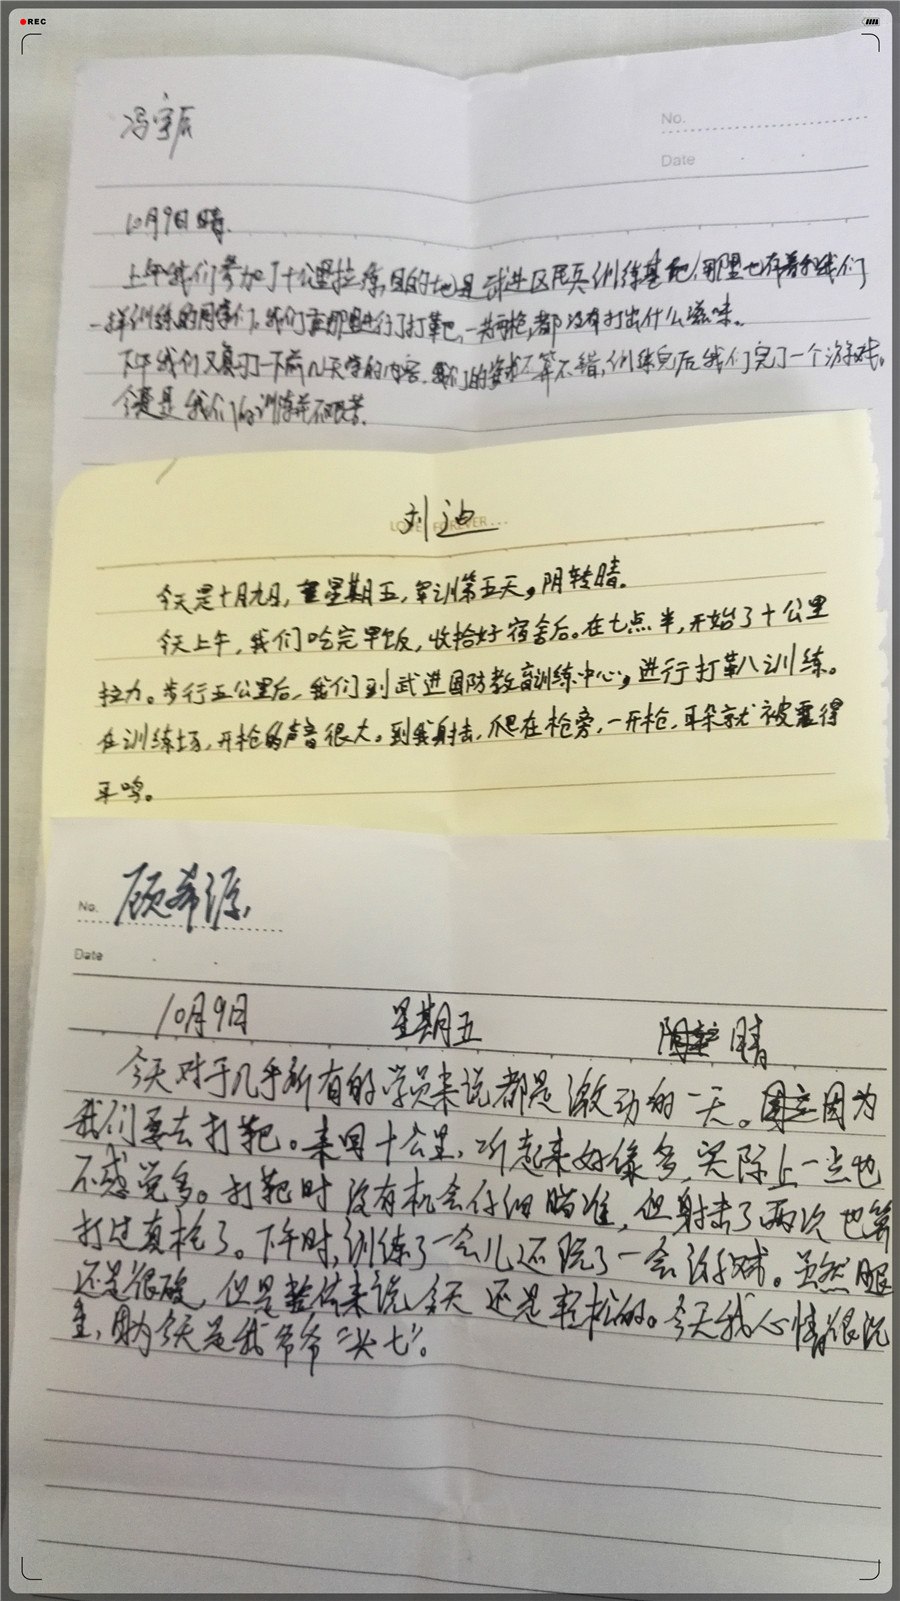 REC
冯宇辰
No.
Date
10月9日 晴.
上午我们参加了十公里拉练,目的地是武进区民兵训练基地,那里也有着和我们
一样训练的同学们。我们在那里进行了打靶,一共两枪,都没有打出什么滋味。
下午我们又复习了一下前几天学的内容.我们的 不算不错,训练完后我们完了一个游戏。
今 是我们的训练并不艰苦.
LOVE FOREVER...
刘迪
今天是十月九日,星期五,军训第五天,阴转晴.
今天上午,我们吃完早饭,收拾好宿舍后。在七点半,开始了十公里
拉力。步行五公里后,我们到武进国防教育训练中心,进行打靶训练。
在训练场,开枪的声音很大。到我射击,爬在枪旁,一开枪,耳朵就被震得
耳鸣。
No. 顾希源
Date
10月9日 星期五 晴
今天对于几乎所有的学员来说都是激动的一天。因为
我们要去打靶。来回十公里,听起来好像多,实际上一点也
不感觉多。打靶时没有机会仔细瞄准,但射击了两次也算
打过真枪了。下午时,训练了一会儿还玩了一会游戏。虽然腿
还是很酸,但是整体来说今天还是轻松的。今天我心情很沉
重,因为今天是我爷爷“头七”。